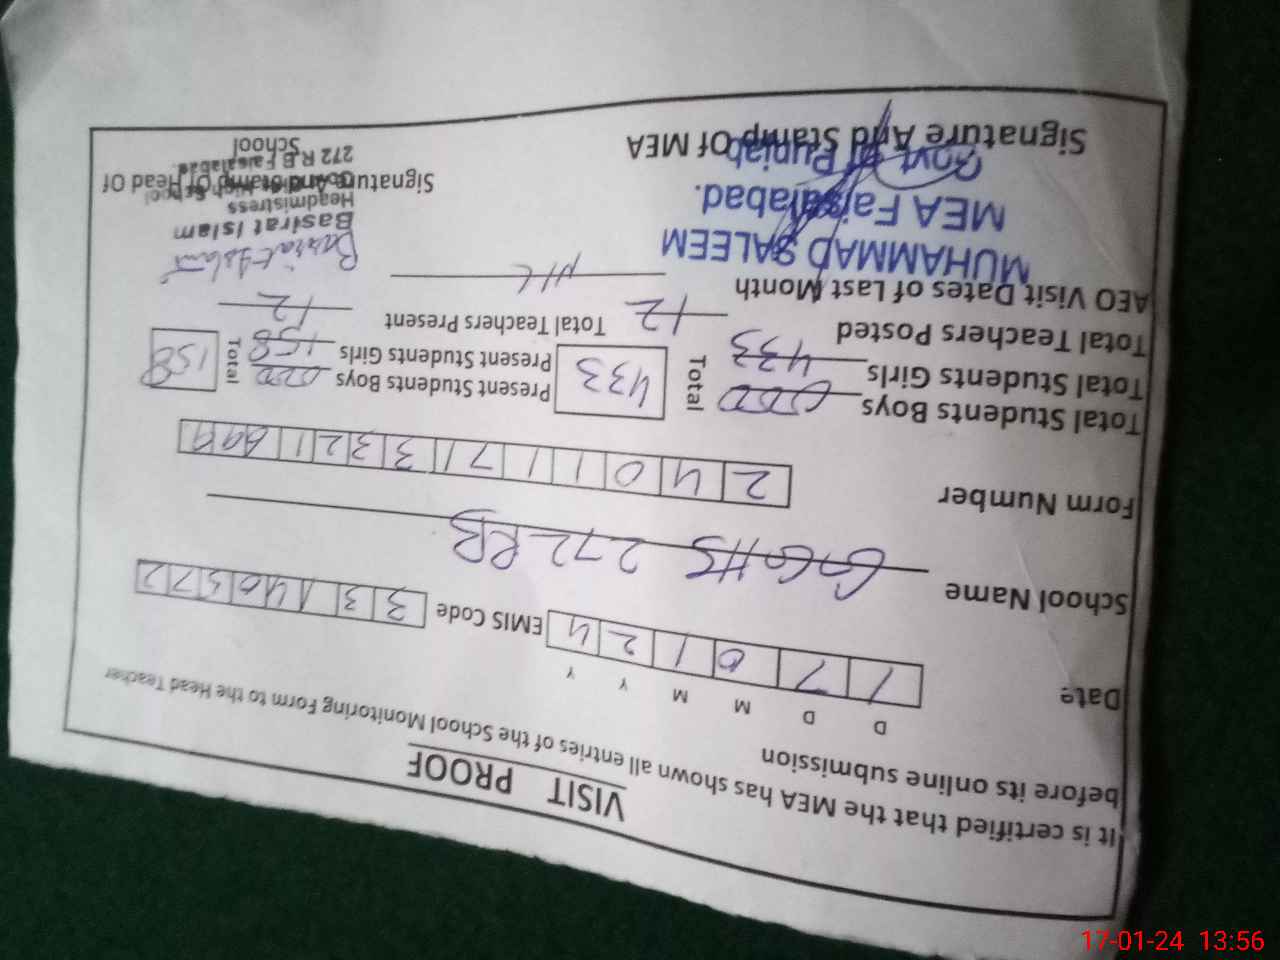 VISIT PROOF
It is certified that the MEA has shown all entries of the School Monitoring Form to the Head Teacher
before its online submission
D D M M Y Y
Date 1 7 0 1 2 4 EMIS Code 3 3 1 4 0 3 7 2
School Name GGHS 272 RB
Form Number 2 4 0 1 1 7 1 3 3 2 1
Total Students Boys 000 Total 433 Present Students Boys 000 Total 158
Total Students Girls 433 Present Students Girls 158
Total Teachers Posted 12 Total Teachers Present 12
AEO Visit Dates of Last Month NIL
MUHAMMAD SALEEM
MEA Faisalabad.
Govt of Punjab
Signature And Stamp Of MEA
Basirat Islam
Basirat Islam
Headmistress
272 R.B Faisalabad.
Signature And Stamp Of Head Of
School
17-01-24 13:56